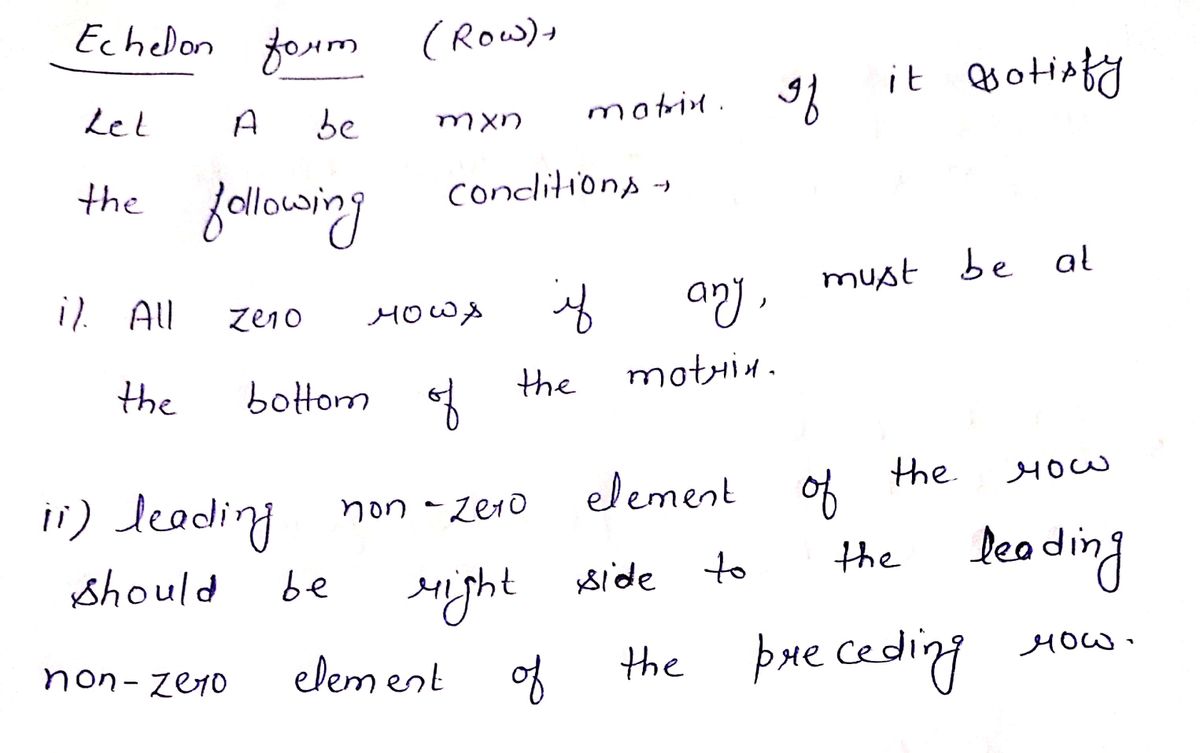 Echelon form (Row)→
Let A be m×n matrix. If it satisfy
the following conditions →
i). All zero rows if any, must be at
the bottom of the matrix.
ii) leading non-zero element of the row
should be right side to the leading
non-zero element of the preceding row.